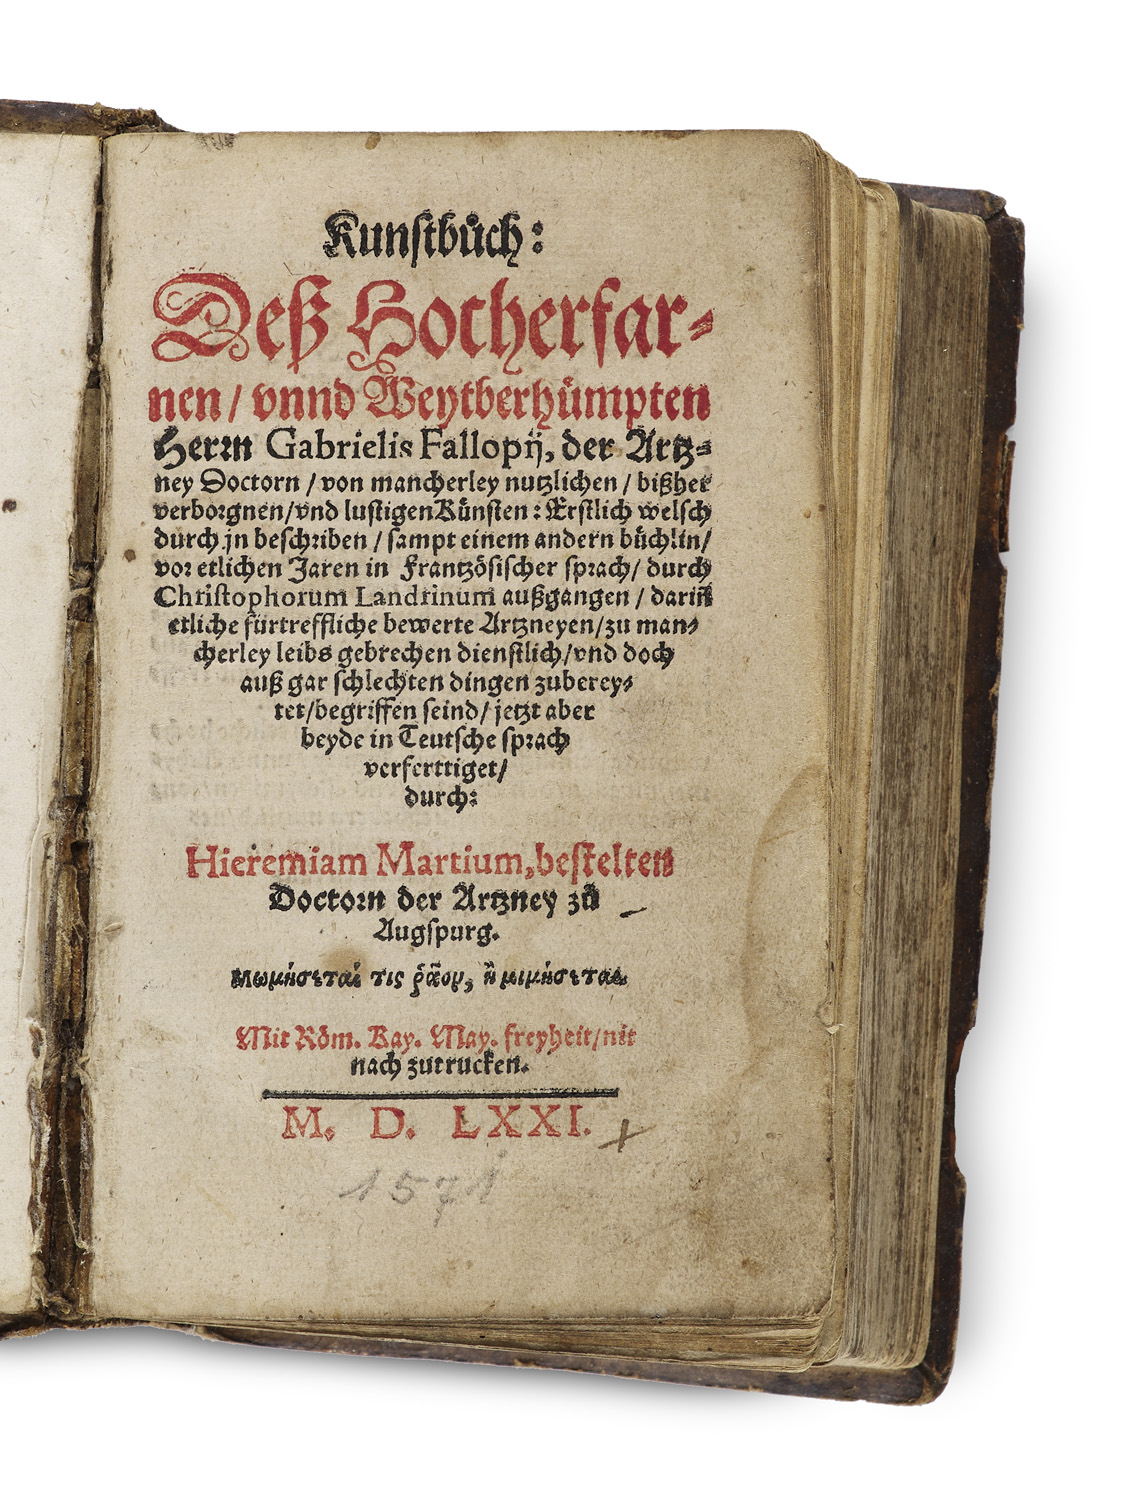 Kunſtbuͦch:
Deß Hocherfar⸗
nen / vnnd Weytberhuͤmpten
Herrn Gabrielis Fallopij, der Artz⸗
ney Doctorn / von mancherley nutzlichen / bißher
verborgnen/vnd luſtigen Kuͤnſten: Erſtlich welſch
durch jn beſchriben / ſampt einem andern buͤchlin/
vor etlichen Jaren in Frantzoͤſiſcher ſprach/ durch
Chriſtophorum Landrinum außgangen / dariñ
etliche fürtreffliche bewerte Artzneyen/zu man⸗
cherley leibs gebrechen dienſtlich/vnd doch
auß gar ſchlechten dingen zuberey⸗
tet/begriffen ſeind/ jetzt aber
beyde in Teutſche ſprach
verferttiget/
durch:
Hieremiam Martium, beſtelten
Doctorn der Artzney zuͦ
Augſpurg.
Μωμήσεταί τις ῥᾶον, ἢ μιμήσεται.
Mit Roͤm. Kay. May. freyheit/nit
nach zutrucken.
M. D. LXXI. +
1571